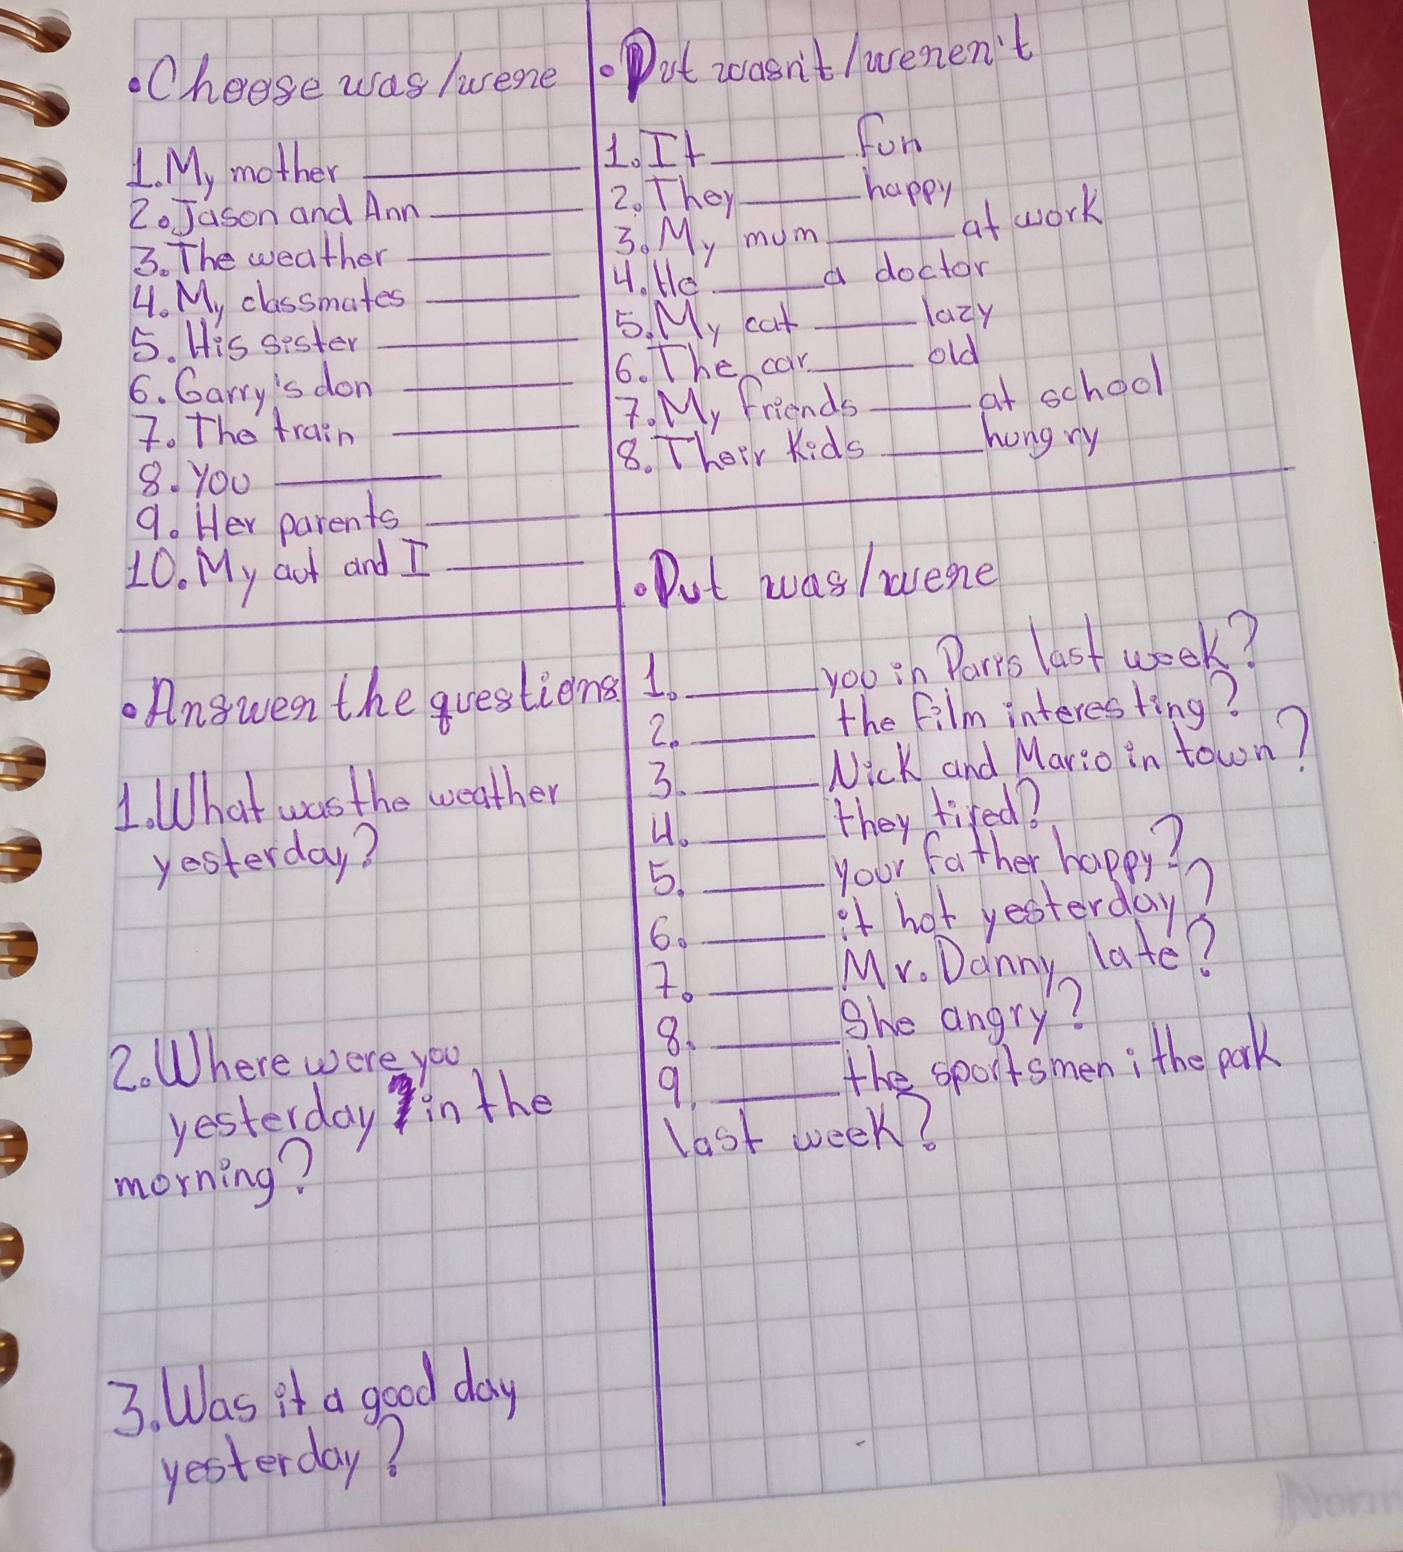 •Choose was/were
1. My mother ______
2. Jason and Ann ______
3. The weather ______
4. My classmates ______
5. His sister ______
6. Garry's don ______
7. The train ______
8. You ______
9. Her parents ______
10. My aut and I ______
•Put wasn't/weren't
1. It ______ fun
2. They ______ happy
3. My mum ______ at work
4. He ______ a doctor
5. My cat ______ lazy
6. The car ______ old
7. My friends ______ at school
8. Their Kids ______ hungry
•Answer the questions
1. What was the weather
yesterday?
2. Where were you
yesterday in the
morning?
3. Was it a good day
yesterday?
•Put was/were
1. ______ you in Parrs last week?
2. ______ the film interesting?
3. ______ Nick and Mario in town?
4. ______ they tired?
5. ______ your father happy?
6. ______ it hot yesterday?
7. ______ Mr. Danny late?
8. ______ She angry?
9. ______ the sportsmen i the park
last week?